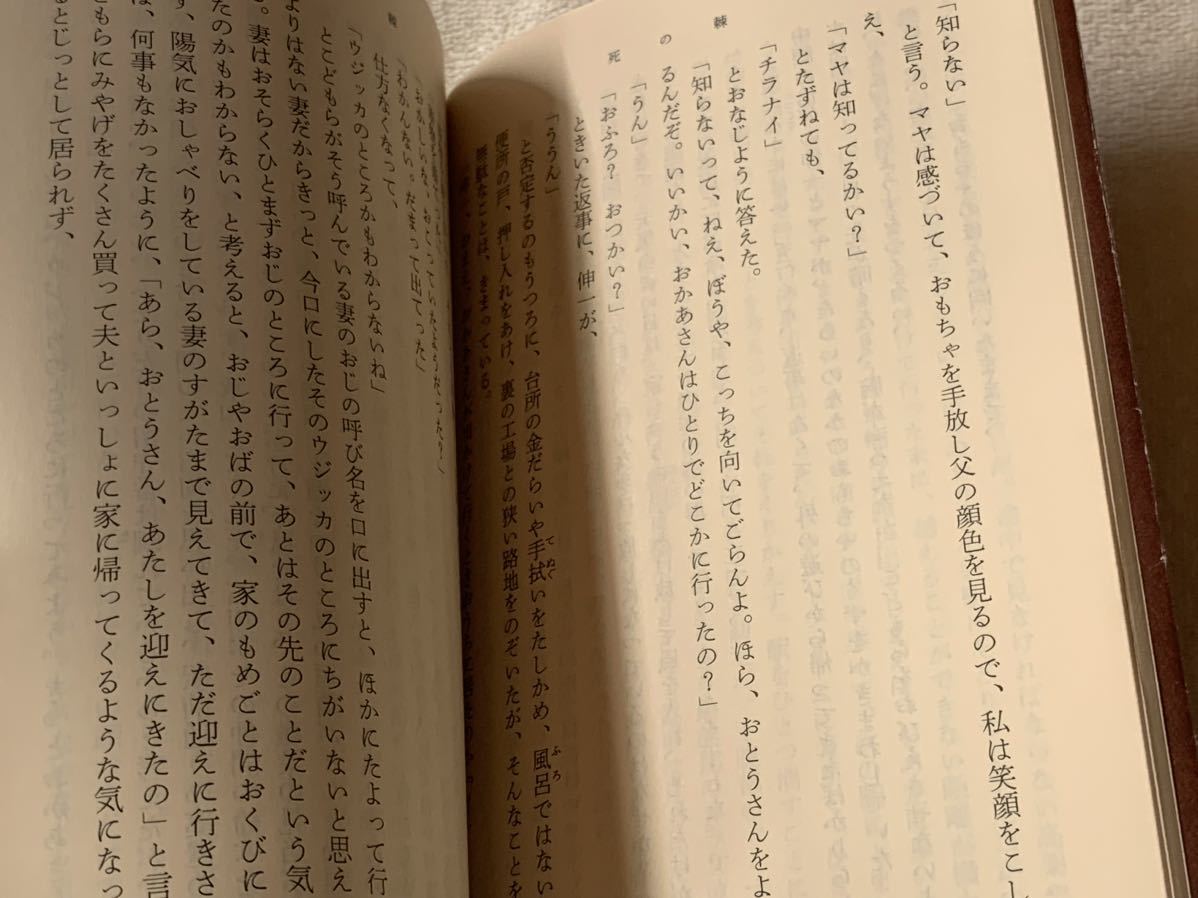 「知らない」
と言う。マヤは感づいて、おもちゃを手放し父の顔色を見るので、私は笑顔をこし
え、
「マヤは知ってるかい？」
とたずねても、
「チラナイ」
とおなじように答えた。
「知らないって、ねえ、ぼうや、こっちを向いてごらんよ。ほら、おとうさんをよ
るんだぞ。いいかい、おかあさんはひとりでどこかに行ったの？」
「うん」
「おふろ？　おつかい？」
ときいた返事に、伸一が、
「ううん」
と否定するのもうつろに、台所の金だらいや手拭いをたしかめ、風呂ではない
便所の戸、押し入れをあけ、裏の工場との狭い路地をのぞいたが、そんなことを
無駄なことは、きまっている。
棘
の
死
棘
「わかんない。だまって出てった」
仕方なくなって、
「ウジッカのところかもわからないね」
とこどもらがそう呼んでいる妻のおじの呼び名を口に出すと、ほかにたよって行
よりはない妻だからきっと、今口にしたそのウジッカのところにちがいないと思え
。妻はおそらくひとまずおじのところに行って、あとはその先のことだという気
たのかもわからない、と考えると、おじやおばの前で、家のもめごとはおくびに
ず、陽気におしゃべりをしている妻のすがたまで見えてきて、ただ迎えに行きさ
は、何事もなかったように、「あら、おとうさん、あたしを迎えにきたの」と言
どもらにみやげをたくさん買って夫といっしょに家に帰ってくるような気になっ
るとじっとして居られず、